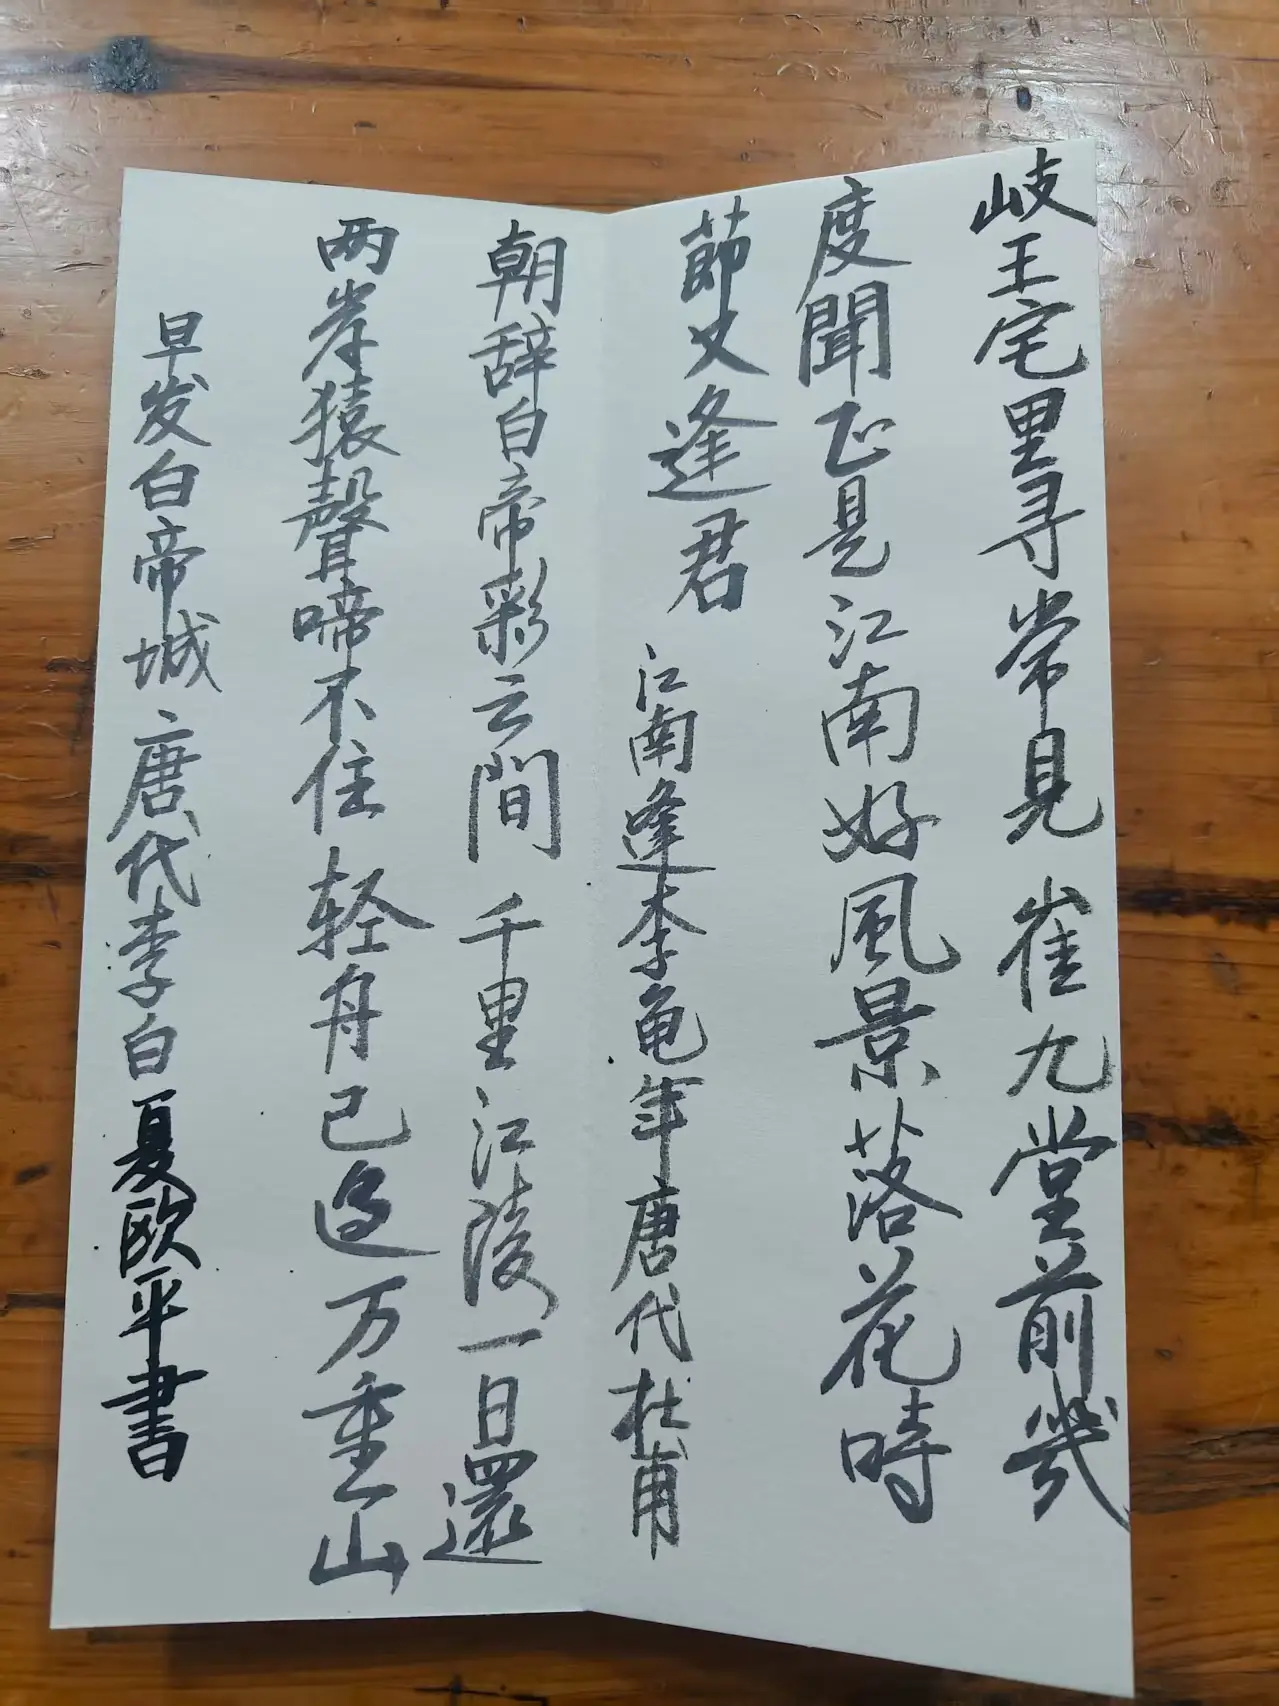 岐王宅里寻常見崔九堂前幾
度聞正是江南好風景落花時
節又逢君
江南逢李龟年唐代杜甫
朝辞白帝彩云間千里江陵一日還
两岸猿聲啼不住轻舟已过万重山
早发白帝城唐代李白夏欧平書